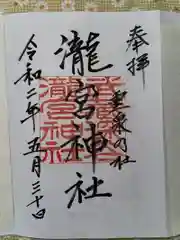 奉拝
泉の社
瀧宮神社
令和二年五月三十日